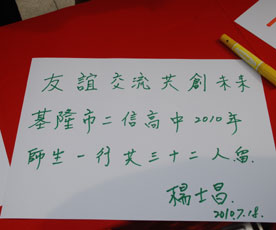 友誼交流共創未來
基隆市二信高中2010年
師生一行共三十二人留.
楊士昌.
2010.7.18.